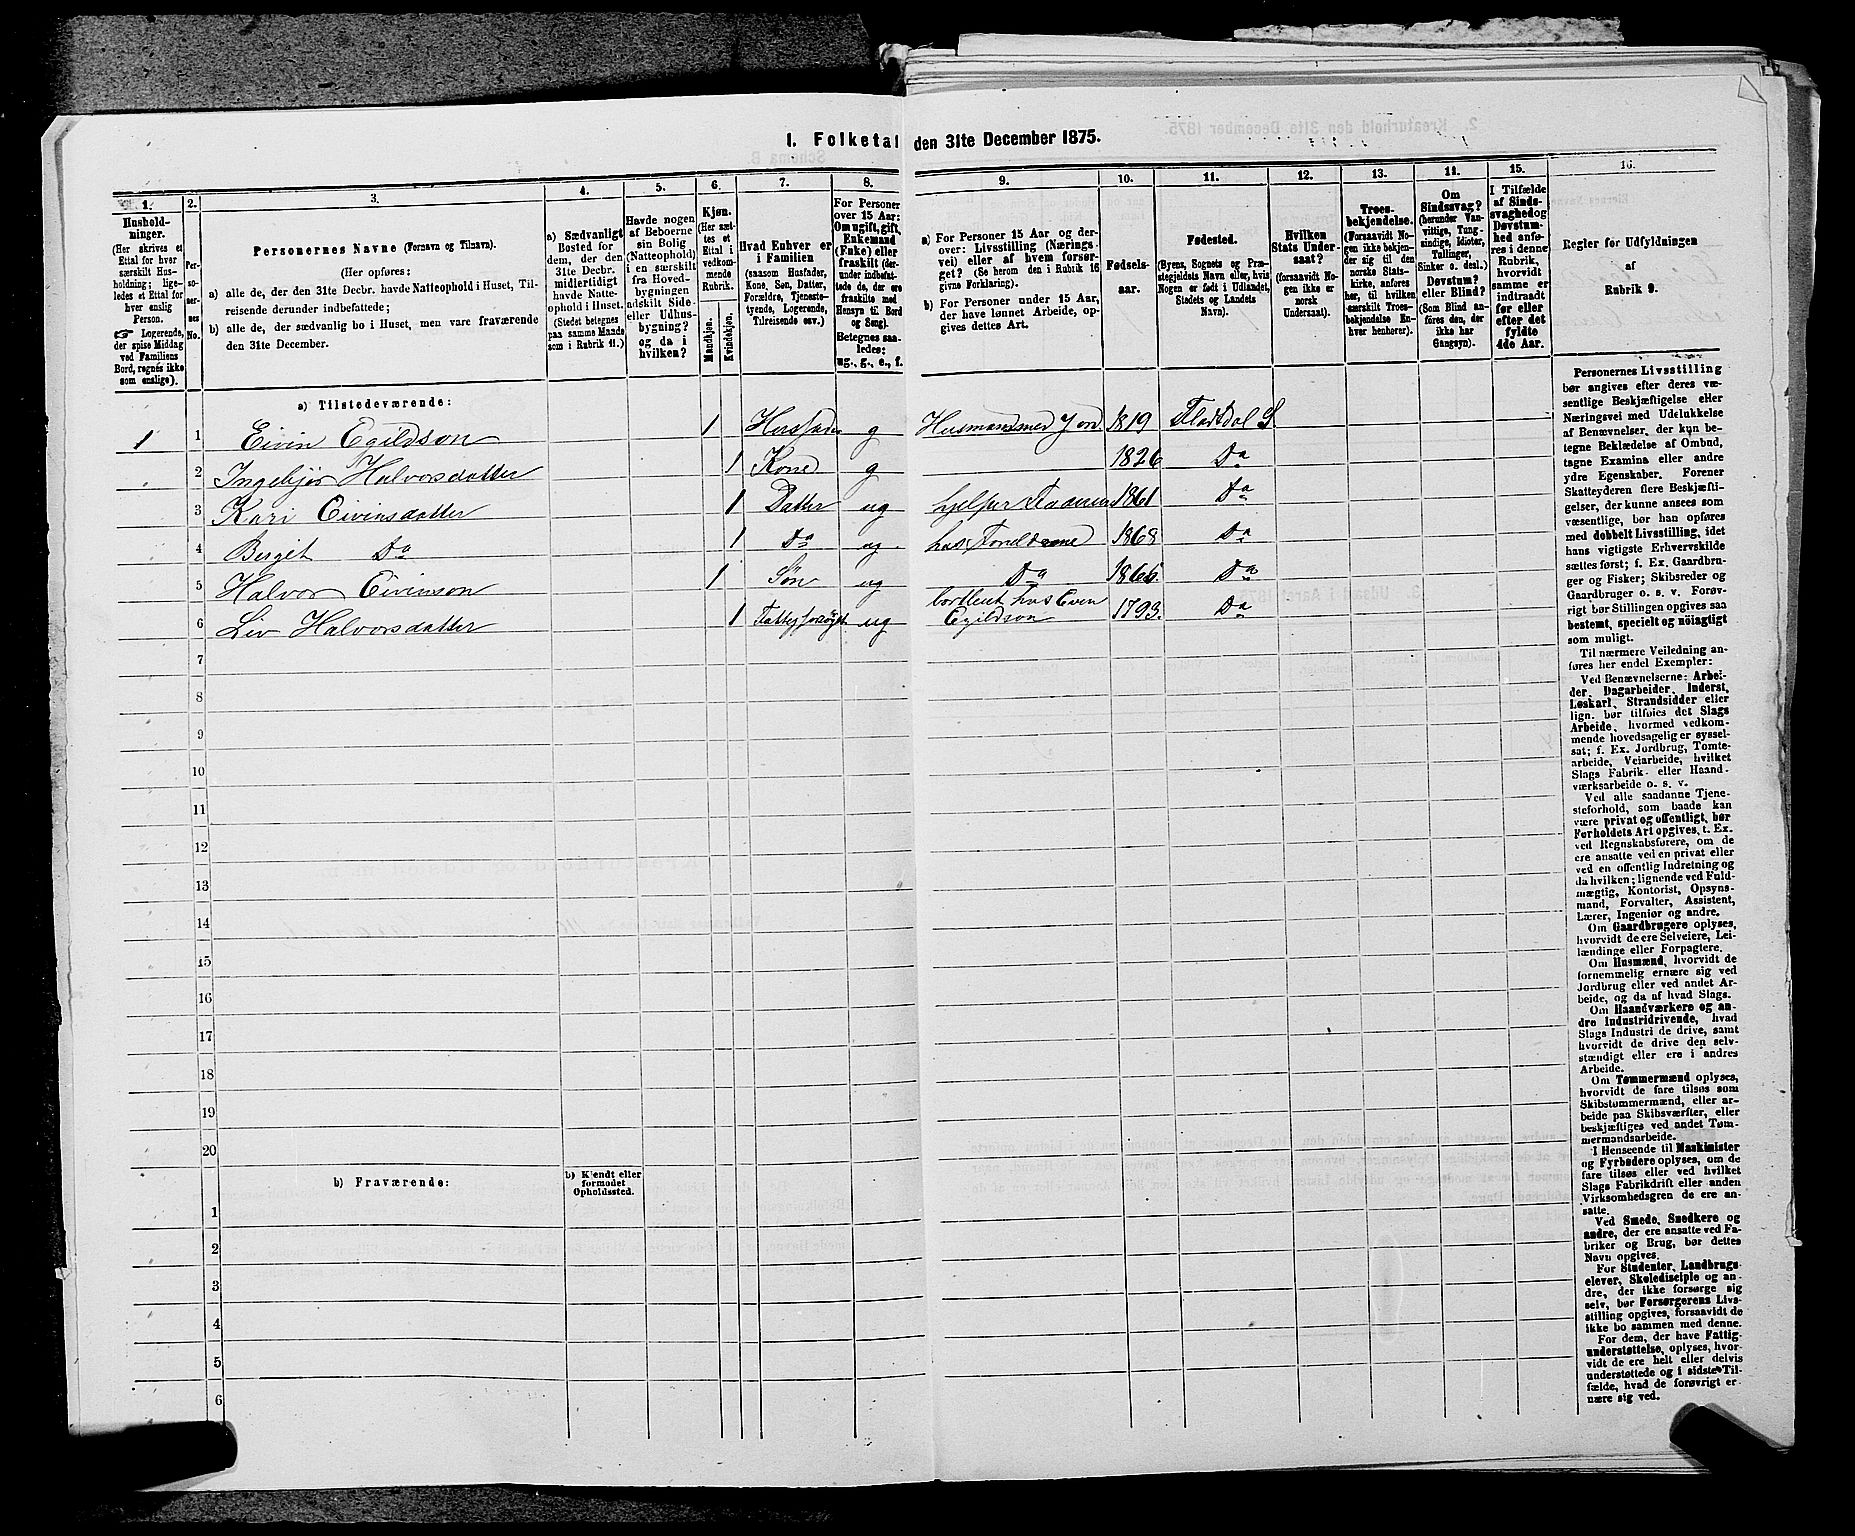 I. Folketal den 31te December 1875.
1. 2. 3. 4. 5. 6. 7. 8. 9. 10. 11. 12. 13. 14. 15. 16.
Husholdninger.
(Her skrives et
Ettal for hver
særskilt Husholdning;
ligeledes et Ettal for
hver enslig
Person.
Logerende,
der spise Middag
ved Familiens
Bord, regnes ikke
som enslige).
Personernes No.
Personernes Navne (Fornavn og Tilnavn).
(Her opføres:
a) alle de, der den 31te Decbr. havde Natteophold i Huset, Tilreisende derunder indbefattede;
b) alle de, der sædvanlig bo i Huset, men vare fraværende
den 31te December.
a) Sædvanligt
Bosted for
dem, der den
31te Decbr.
midlertidigt
havde Natteophold i Huset.
(Stedet betegnes
paa samme Maade
som i Rubrik 11.)
Havde nogen
af Beboerne
sin Bolig
(Natteophold)
i en særskilt
fra Hovedbygningen
adskilt Side-
eller Udhusbygning?
og da i
hvilken?
Kjøn.
(Her sættes et
Ettal i
vedkommende
Rubrik.
Mandkjøn.
Kvindekjøn.
Hvad Enhver er
i Familien
(saasom Husfader,
Kone, Søn, Datter,
Forældre, Tjenestetyende, Logerende,
Tilreisende osv.)
For Personer
over 15 Aar:
Om ugift, gift,
Enkemand
(Enke) eller
fraskilt (derunder indbefattede de, der ere
fraskilte med
Hensyn til Bord
og Seng).
Betegnes saaledes:
ug., g., e., f.
a) For Personer 15 Aar og derover: Livsstilling (Næringsvei) eller af hvem forsørget? (Se herom den i Rubrik 16
givne Forklaring).
b) For Personer under 15 Aar,
der have lønnet Arbeide, opgives dettes Art.
Fødselsaar.
Fødested.
(Byens, Sognets og Præstegjeldets Navn eller, hvis
Nogen er født i Udlandet,
Stedets og Landets
Navn).
Hvilken
Stats Undersaat?
(forsaavidt Nogen ikke er
norsk
Undersaat).
Troesbekjendelse.
(Forsaavidt Nogen ikke bekjender sig til den
norske Statskirke, anføres
her, til hvilken
særskilt Troesbekjendelse Enhver henhører).
Om
Sindssvag?
(herunder Vanvittige, Tungsindige, Idioter,
Tullinger,
Sinker o. desl.)
Døvstum?
eller Blind?
(Som Blind anføres den, der
ikke har
Gangsyn).
I Tilfælde
af Sindssvaghed og
Døvstumhed anføres i denne
Rubrik,
hvorvidt
samme er
indtraadt
før eller
efter det
fyldte
4de Aar.
Regler for Udfyldningen
af
Rubrik 9.
a) Tilstedeværende:
1 1 Eivin Egildson 1 Husfader g Husmand med Jord 1819 Flatdal S
2 Ingebjør Halvorsdatter 1 Kone g 1826 Do
3 Kari Eivinsdatter 1 Datter ug hjelper Faderen 1861 Do
4 Berget Do 1 Do ug hos Foreldrene 1868 Do
5 Halvor Eivinson 1 Søn ug Do 1866 Do
6 Liv Halvorsdatter 1 ug hos Even Egildson 1793. Do
7
8
9
10
11
12
13
14
15
16
17
18
19
20
b) Fraværende:
b) Kjendt eller
formodet
Opholdssted.
1
2
3
4
5
6
Personernes Livsstilling
bør angives efter deres væsentlige Beskjæftigelse eller
Næringsvei med Udelukkelse
af Benævnelser, der kun betegne Beklædelse af Ombud,
tagne Examina eller andre
ydre Egenskaber. Forener
Skatteyderen flere Beskjæftigelser, der kunne ansees som
væsentlige, bør han opføres
med dobbelt Livsstilling, idet
hans vigtigste Erhvervskilde
sættes først; f. Ex. Gaardbruger og Fisker; Skibsreder og
Gaardbruger o. s. v. Forøvrigt bør Stillingen opgives saa
bestemt, specielt og nöiagtigt
som muligt.
Til nærmere Veiledning anføres her endel Exempler:
Ved Benævnelserne: Arbeider, Dagarbeider, Inderst,
Løskarl, Strandsidder eller
lign. bør tilføies det Slags
Arbeide, hvormed vedkommende hovedsagelig er sysselsat; f. Ex. Jordbrug, Tomtearbeide, Veiarbeide, hvilket
Slags Fabrik- eller Haandværksarbeide o. s. v.
Ved alle saadanne Tjenesteforhold, som baade kan
være privat og offentligt, bør
Forholdets Art opgives, t. Ex.
ved Regnskabsførere, om de
ere ansatte ved en privat eller
ved en offentlig Indretning og
da hvilken; lignende ved Fuldmægtig, Kontorist, Opsynsmand, Forvalter, Assistent,
Lærer, Ingeniør og andre.
Om Gaardbrugere oplyses,
hvorvidt de ere Selveiere, Leilændinge eller Forpagtere.
Om Husmænd, hvorvidt de
fornemmelig ernære sig ved
Jordbrug eller ved andet Arbeide, og da af hvad Slags.
Om Haandværkere og andre Industridrivende, hvad
Slags Industri de drive, samt
hvorvidt de drive den selvstændigt eller ere i andres
Arbeide.
Om Tømmermænd oplyses,
hvorvidt de fare tilsøs som
Skibstømmermænd, eller arbeide paa Skibsværfter, eller
beskjæftiges ved andet Tømmermandsarbeide.
I Henseende til Maskinister
og Fyrbødere oplyses, om de
fare tilsøs eller ved hvilket
Slags Fabrikdrift eller anden
Virksomhedsgren de ere ansatte.
Ved Smede, Snedkere og
andre, der ere ansatte ved Fabriker og Brug, bør dettes
Navn opgives.
For Studenter, Landbrugselever, Skoledisciple og andre, der ikke forsørge sig
selv, bør Forsørgerens Livsstilling opgives, forsaavidt de
ikke bo sammen med denne.
For dem, der have Fattigunderstøttelse, oplyses, hvorvidt de ere helt eller delvis
understøttede og i sidste Tilfælde, hvad de forøvrigt ernære sig ved.